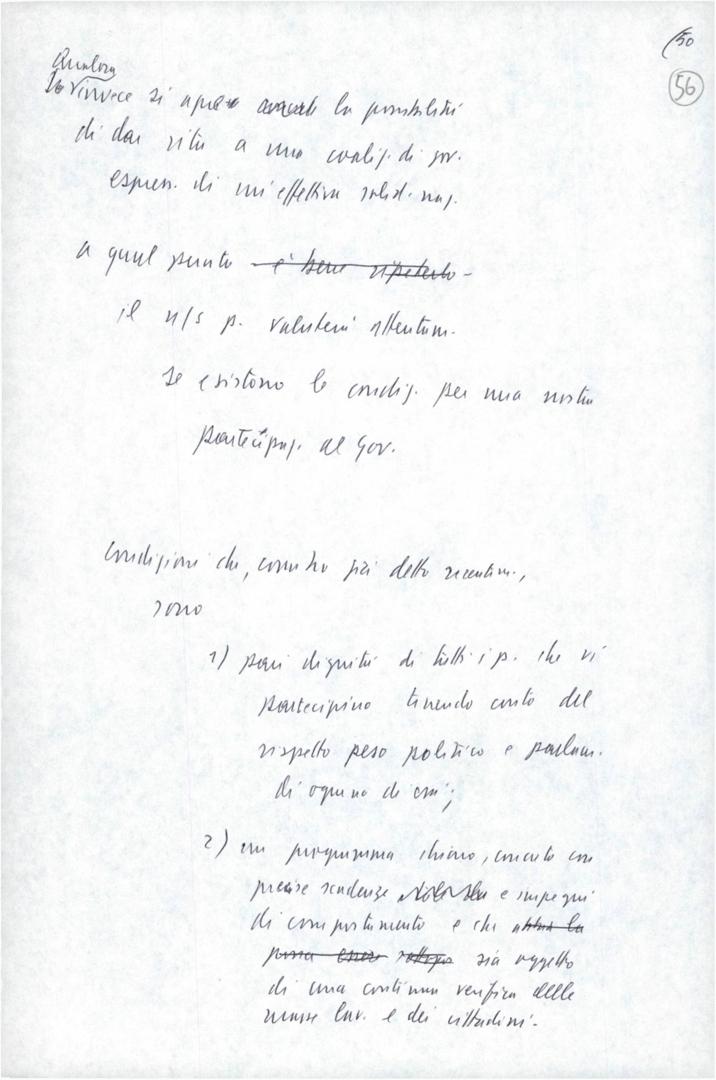 50
56
Qualora
invece si apra la possibilità
di dar vita a una coaliz. di gov.
espress. di un'effettiva solid. naz.
a quel punto è bene ripeterlo -
il n/s p. valuterà attentam.
se esistono le condiz. per una nostra
partecipaz. al Gov.
Condizioni che, come ho già detto recentem.,
sono
1) pari dignità di tutti i p. che vi
partecipino tenendo conto del
rispetto peso politico e parlam.
di ognuno di essi;
2) un programma chiaro, concreto con
precise scadenze e impegni
di comportamento e che
possa essere sia oggetto
di una continua verifica delle
masse lav. e dei cittadini.